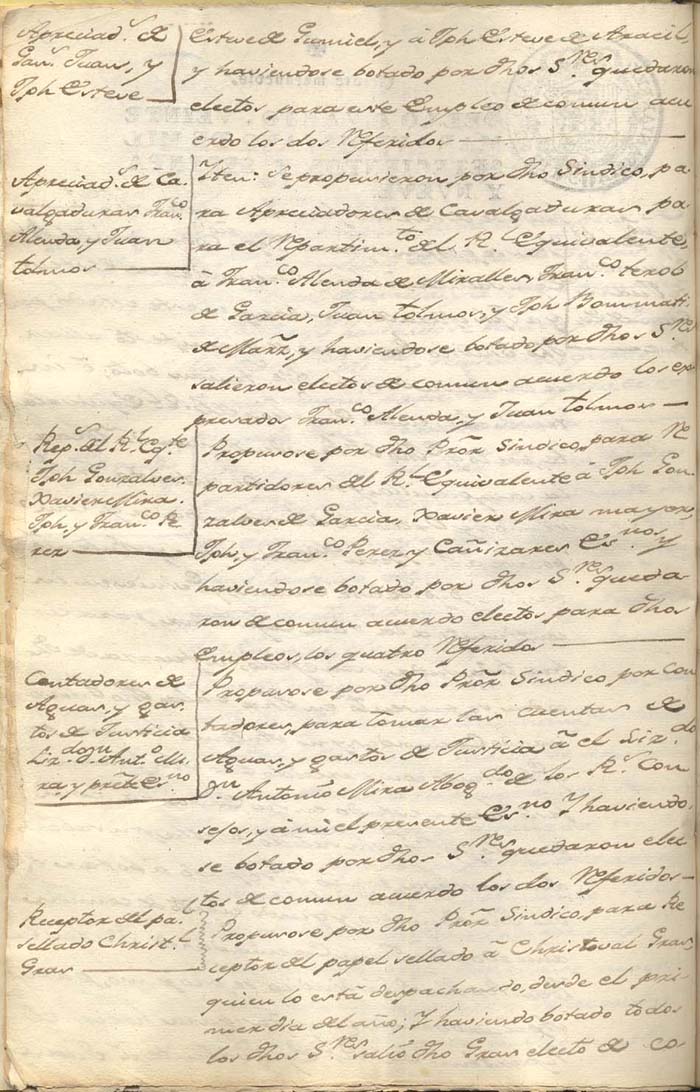 Apreciad.s de
Fran.co Juan, y
Jph Esteve
Esteve de Gumiel, y â Jph Esteve de Aracil,
y haviendose botado por dhos S.res quedaron
electos, para este Empleo de comun acu
erdo los dos Referidos
Apreciad.s de Ca
valgaduras Fran.co
Alenda y Juan
tolmos
Yten: Sepropusieron por dho Sindico, pa
ra Apreciadores de Cavalgaduras pa
ra el Repartim.to del R.l Equivalente,
â Fran.co Alenda de Miralles, Fran.co terol
de Garcia, Juan tolmos, y Jph Bommati
de Mañz, y haviendose botado, por dhos S.res
salieron electos de comun acuerdo los ex
presados Fran.co Alenda, y Juan tolmos
Rep.s del R.l Eq.te
Jph Gonzalves.
Xavier Mira.
Jph, y Fran.co Pe
rez
Propusose por dho Prõr Sindico, para Re
partidores del R.l Equivalente â Jph Gon
zalves de Garcia, Xavier Mira mayor,
Jph, y Fran.co Perez y Cañizares Es.nos y
haviendose botado por dhos S.res queda
ron de comun acuerdo electos para dhos
Empleos, los quatro Referidos
Contadores de
Aguas, y gas
tos de Justicia
Liz.do dn Ant.o Mi
ra, y prẽte es.no
Propusose por dho Prõr Sindico por con
tadores, para tomar las cuentas de
Aguas, y gastos de Justicia â el Liz.do
Dn. Antonio Mira Abog.do de los R.s Con
sejos, y â mi el presente Es.no Y haviendo
se botado por dhos S.res quedaron elec
tos de comun acuerdo los dos Referidos
Receptor del pa.l
sellado Christ.l
Gras
Propusose por dho Prõr Sindico, para Re
ceptor del papel sellado â Christoval Gras,
quien lo estâ despachando, desde el pri
mer dia del año; Y haviendo botado todos
los dhos S.res saliô dho Gras electo de co